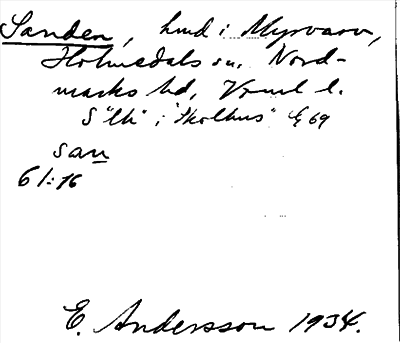 Sanden, hmd i Myrvarv,
Holmedals sn. Nord-
marks hd, Vrml l.
S "lh" i "Skolhus" Eg 69
san
61:16
E. Andersson 1934.